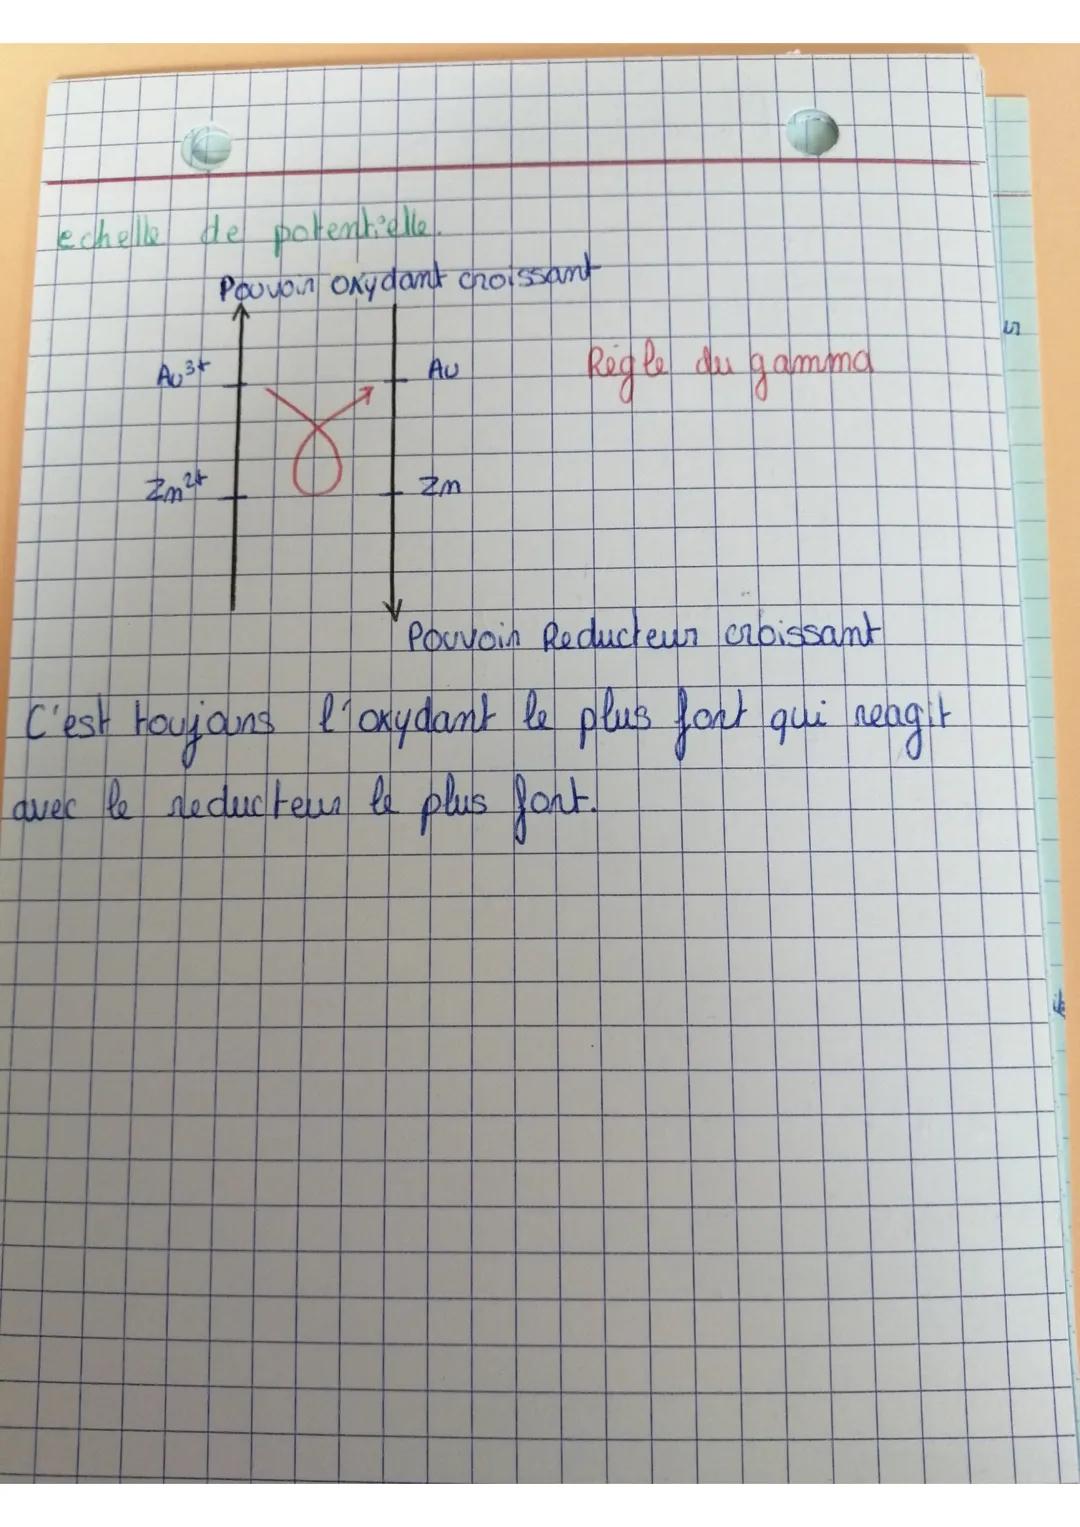 echelle de potentielle.
Pouvoir oxydant croissant
Au³⁺ Au Règle du gamma
Zn²⁺ Zn
Pouvoir Reducteur croissant
C'est toujours l'oxydant le plus fort qui reagit
avec le reducteur le plus fort.